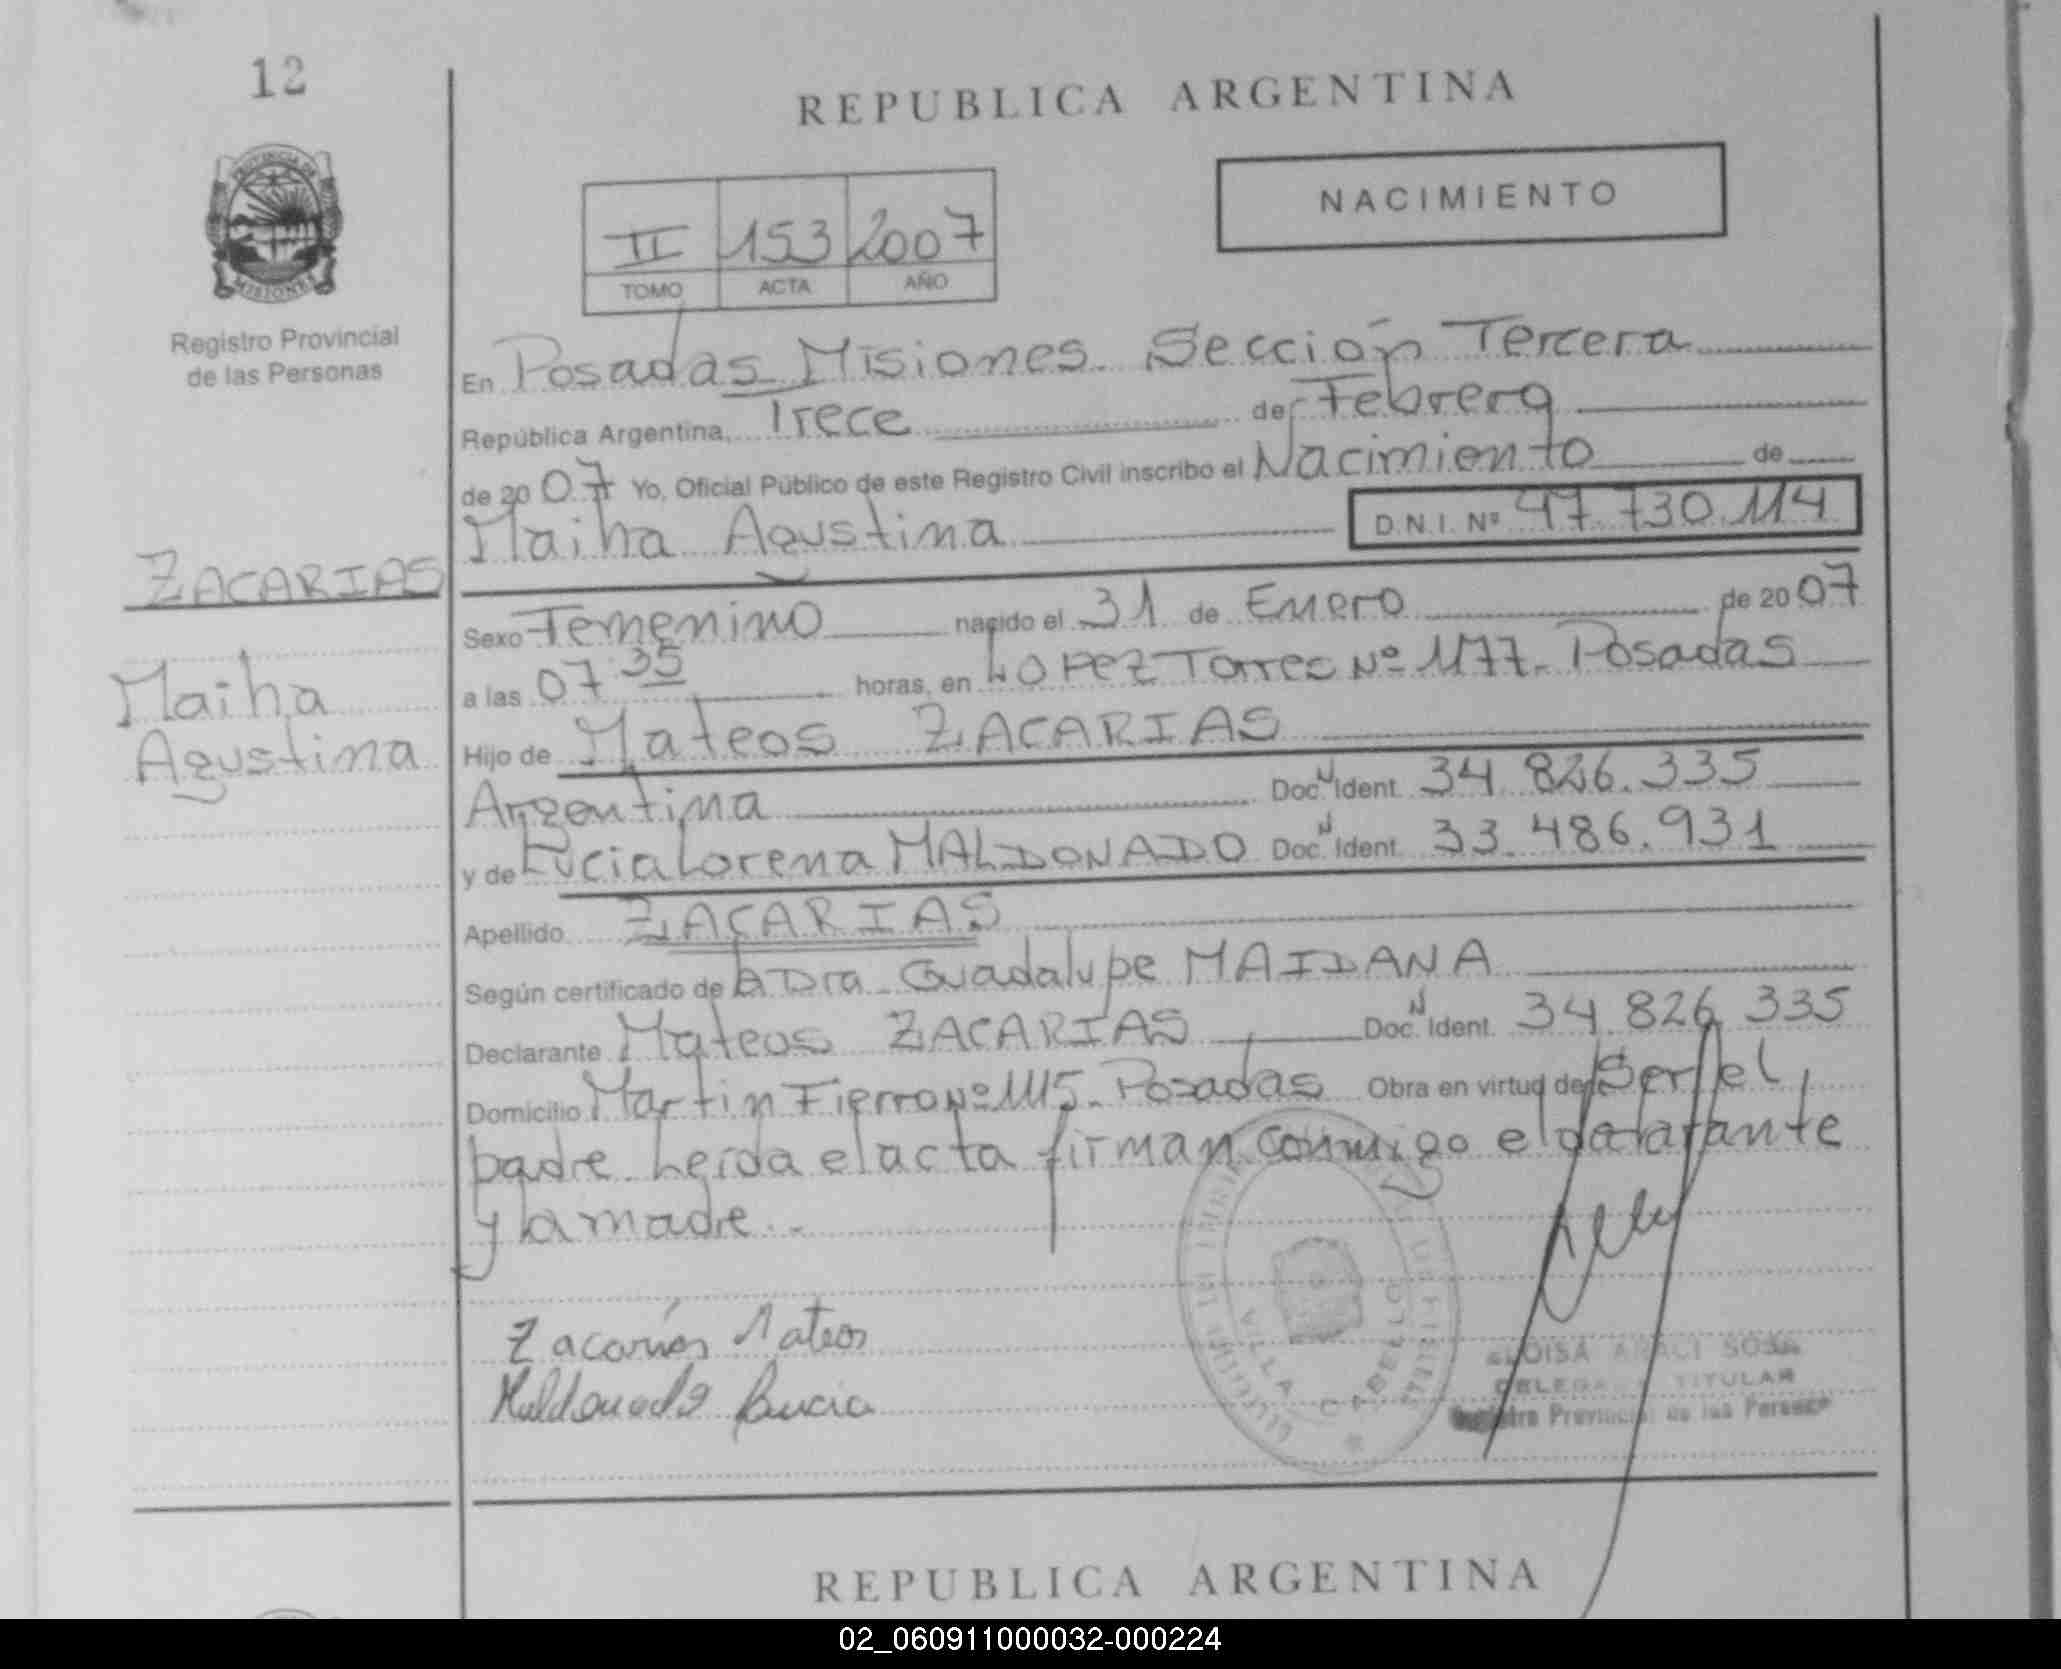 12
REPUBLICA ARGENTINA
PROVINCIA DE
MISIONES
NACIMIENTO
II 153 2007
TOMO ACTA AÑO
Registro Provincial
de las Personas
En Posadas Misiones. Sección Tercera
República Argentina, Trece de Febrero
de 2007 Yo, Oficial Público de este Registro Civil inscribo el Nacimiento de
Maiha Agustina D.N.I. Nº 47.730.114
ZACARIAS
Maiha
Agustina
Sexo Femenino nacido el 31 de Enero de 2007
a las 07 35 horas, en Lopez Torres Nº 1177- Posadas
Hijo de Mateos ZACARIAS
Argentina Doc. N Ident. 34.826.335
y de Lucia Lorena MALDONADO Doc. N Ident. 33.486.931
Apellido ZACARIAS
Según certificado de la Dra Guadalupe MAIDANA
Declarante Mateos ZACARIAS Doc. N Ident. 34.826 335
Domicilio Martin Fierro Nº 1115- Posadas Obra en virtud de Ser el
padre. Leída el acta firman conmigo el declarante
y la madre.-
Zacarías Mateos
Maldonado Lucia
VILLA CABELLO
ELOISA ARACI SOSA
DELEGADA TITULAR
Registro Provincial de las Personas
REPUBLICA ARGENTINA
02_060911000032-000224